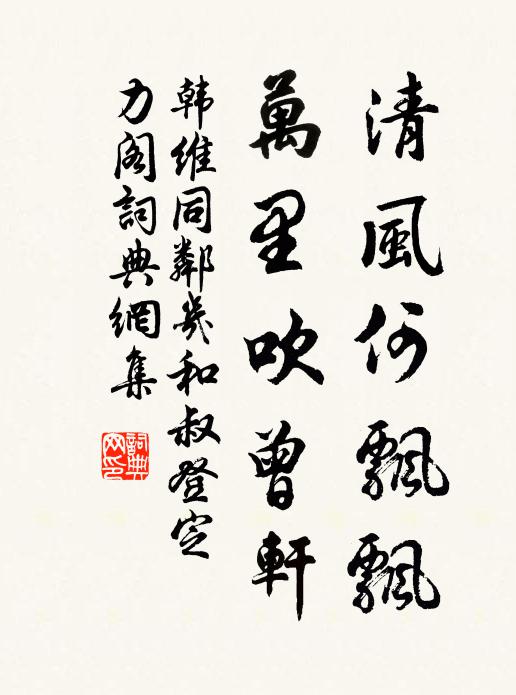 清風何飄飄
萬里吹曾軒
韩維同鄰幾和叔登定
力阁詞典網集
詞典網印